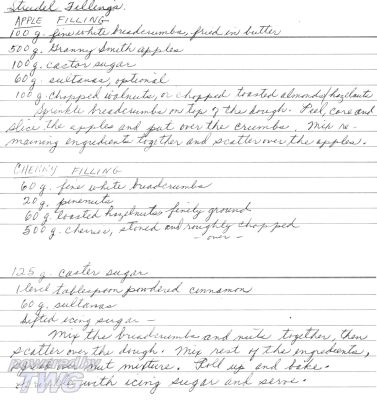 Strudel Fillings
APPLE FILLING
100 g. fine white breadcrumbs, fried in butter
500 g. Granny Smith apples
100 g. castor sugar
60 g. sultanas, optional
100 g. chopped walnuts, or chopped toasted almonds/hazelnuts
Sprinkle breadcrumbs on top of the dough. Peel, core and
slice the apples and put over the crumbs. Mix re-
maining ingredients together and scatter over the apples.
CHERRY FILLING
60 g. fine white breadcrumbs
20 g. pinenuts
60 g. toasted hazelnuts finely ground
500 g. cherries, stoned and roughly chopped
- over -
125 g. caster sugar
1 level tablespoon powdered cinnamon
60 g. sultanas
Sifted icing sugar -
Mix the breadcrumbs and nuts together, then
scatter over the dough. Mix rest of the ingredients,
over nut mixture. Roll up and bake.
with icing sugar and serve.
powered by
TWG